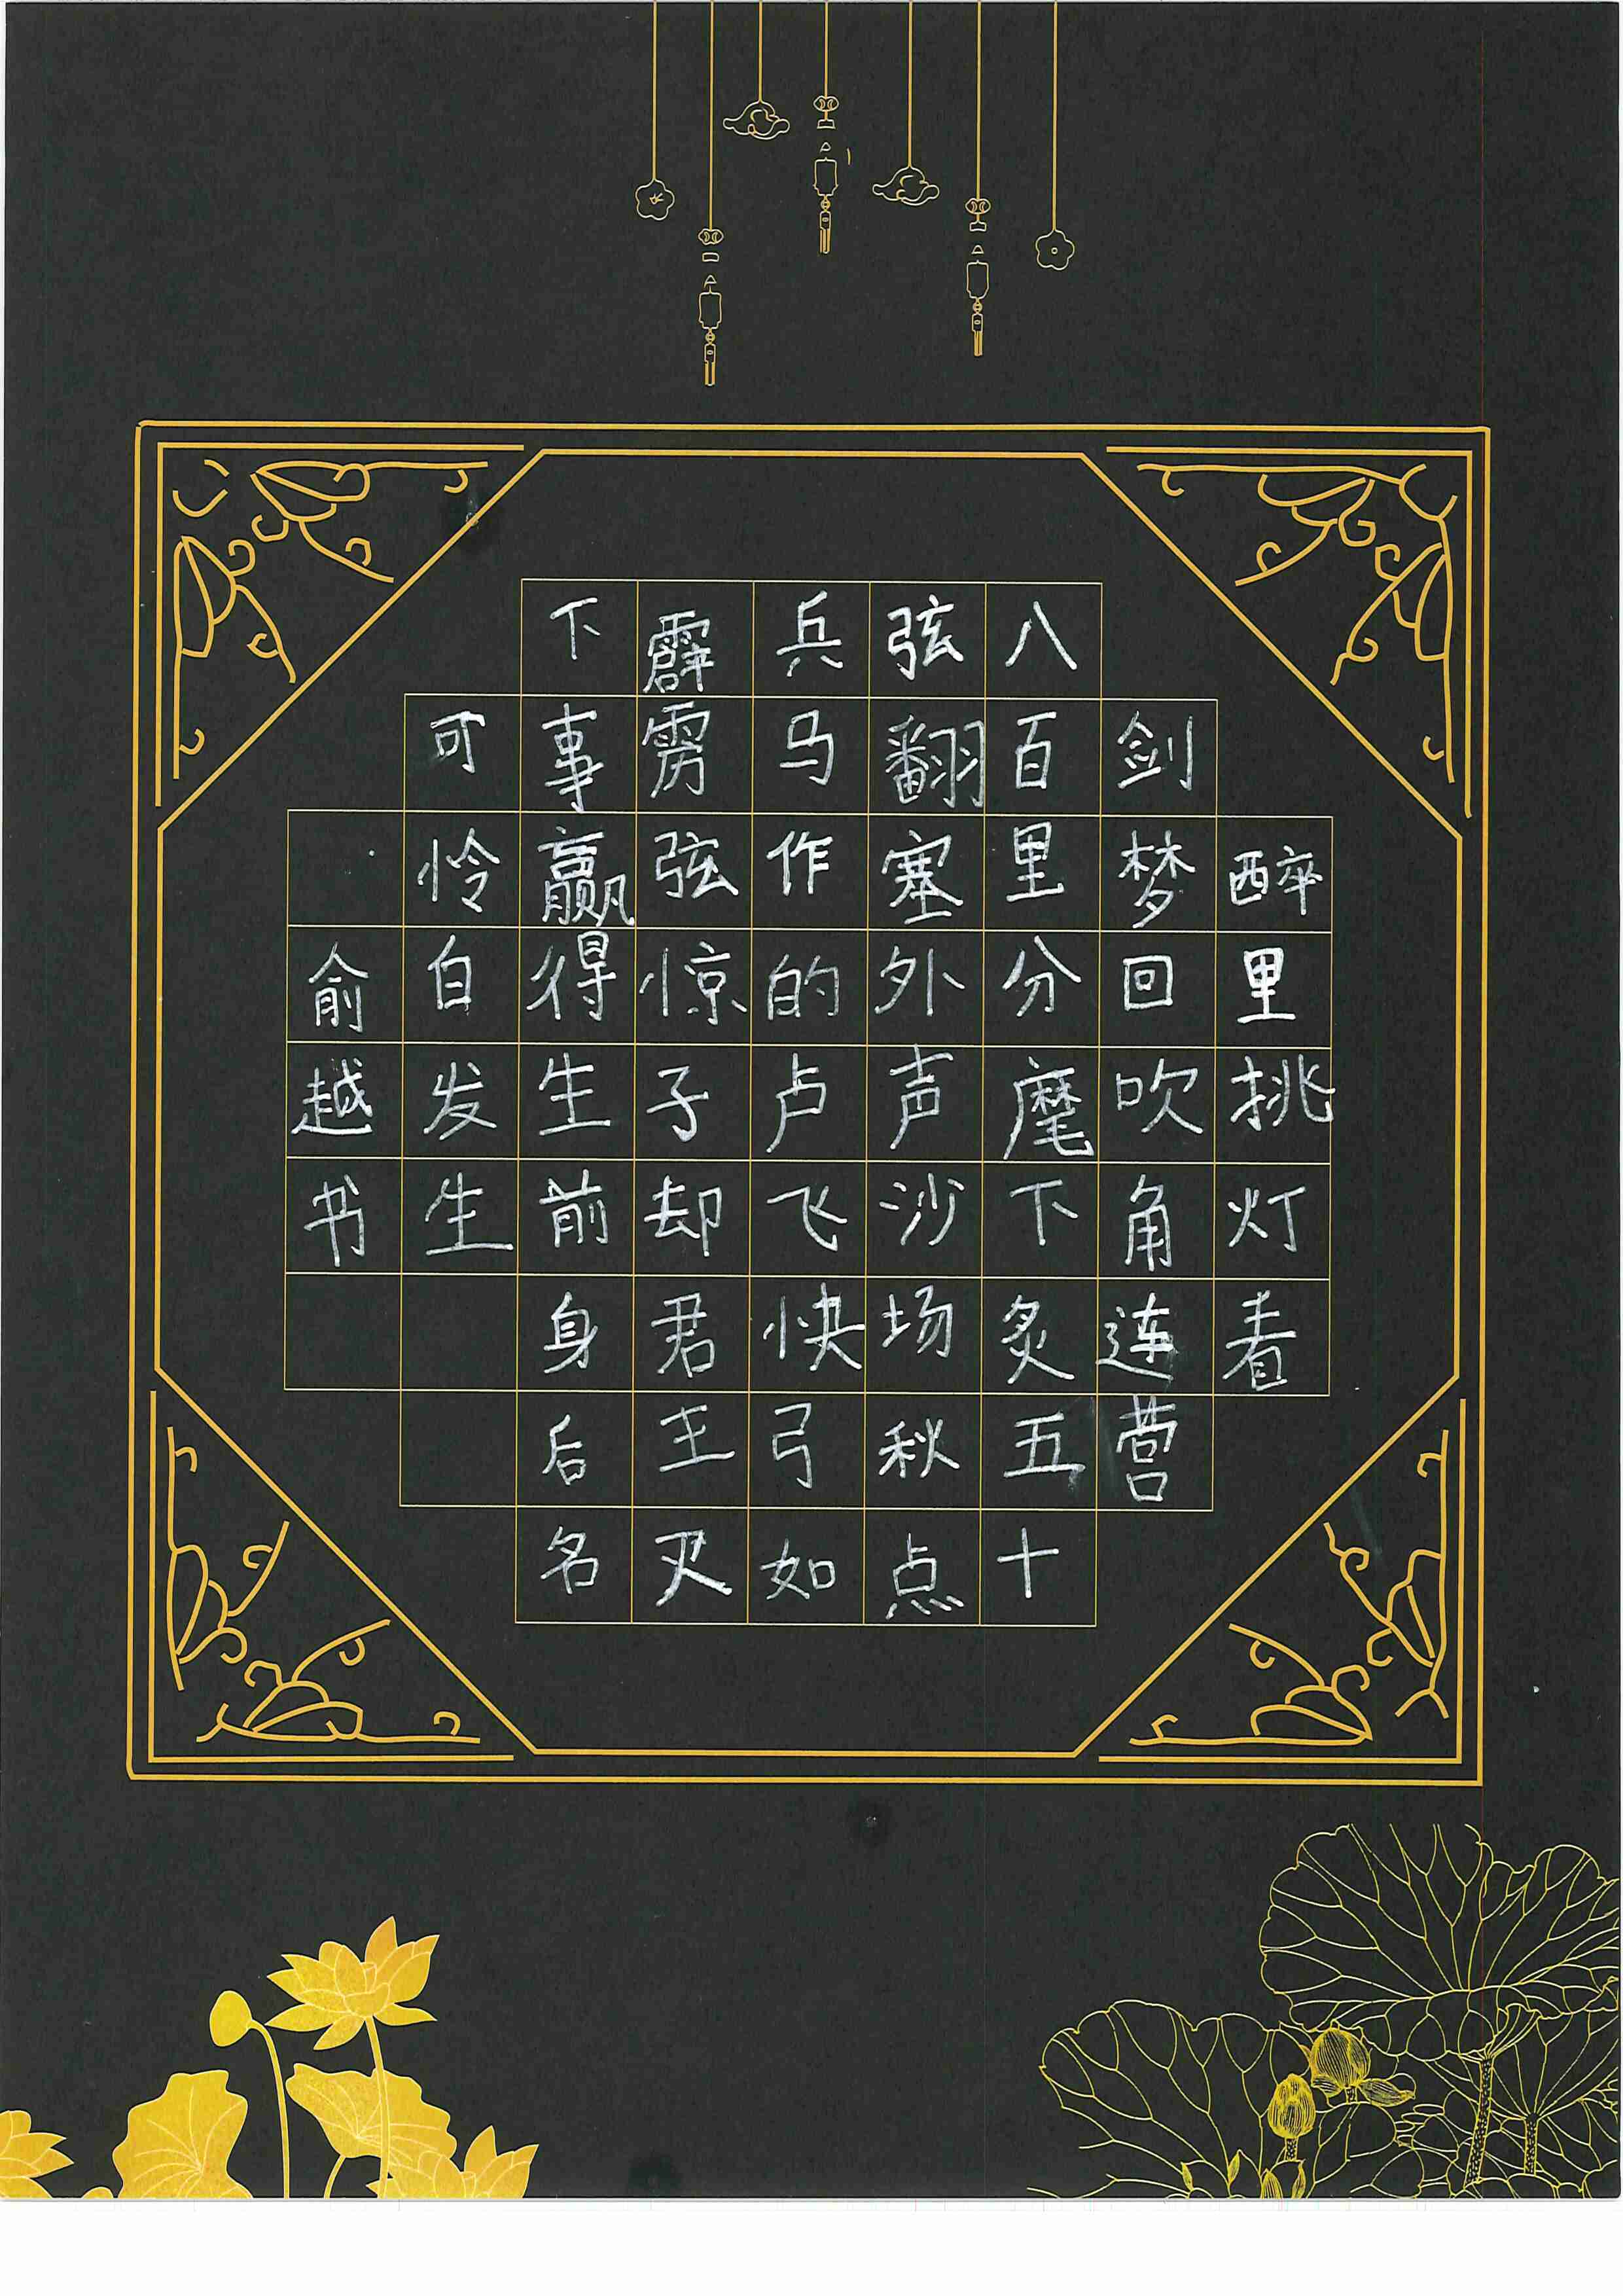 醉里挑灯看
剑梦回吹角连营
八百里分麾下炙五十
弦翻塞外声沙场秋点
兵马作的卢飞快弓如
霹雳弦惊子却君王天
下事赢得生前身后名
可怜白发生
俞越书